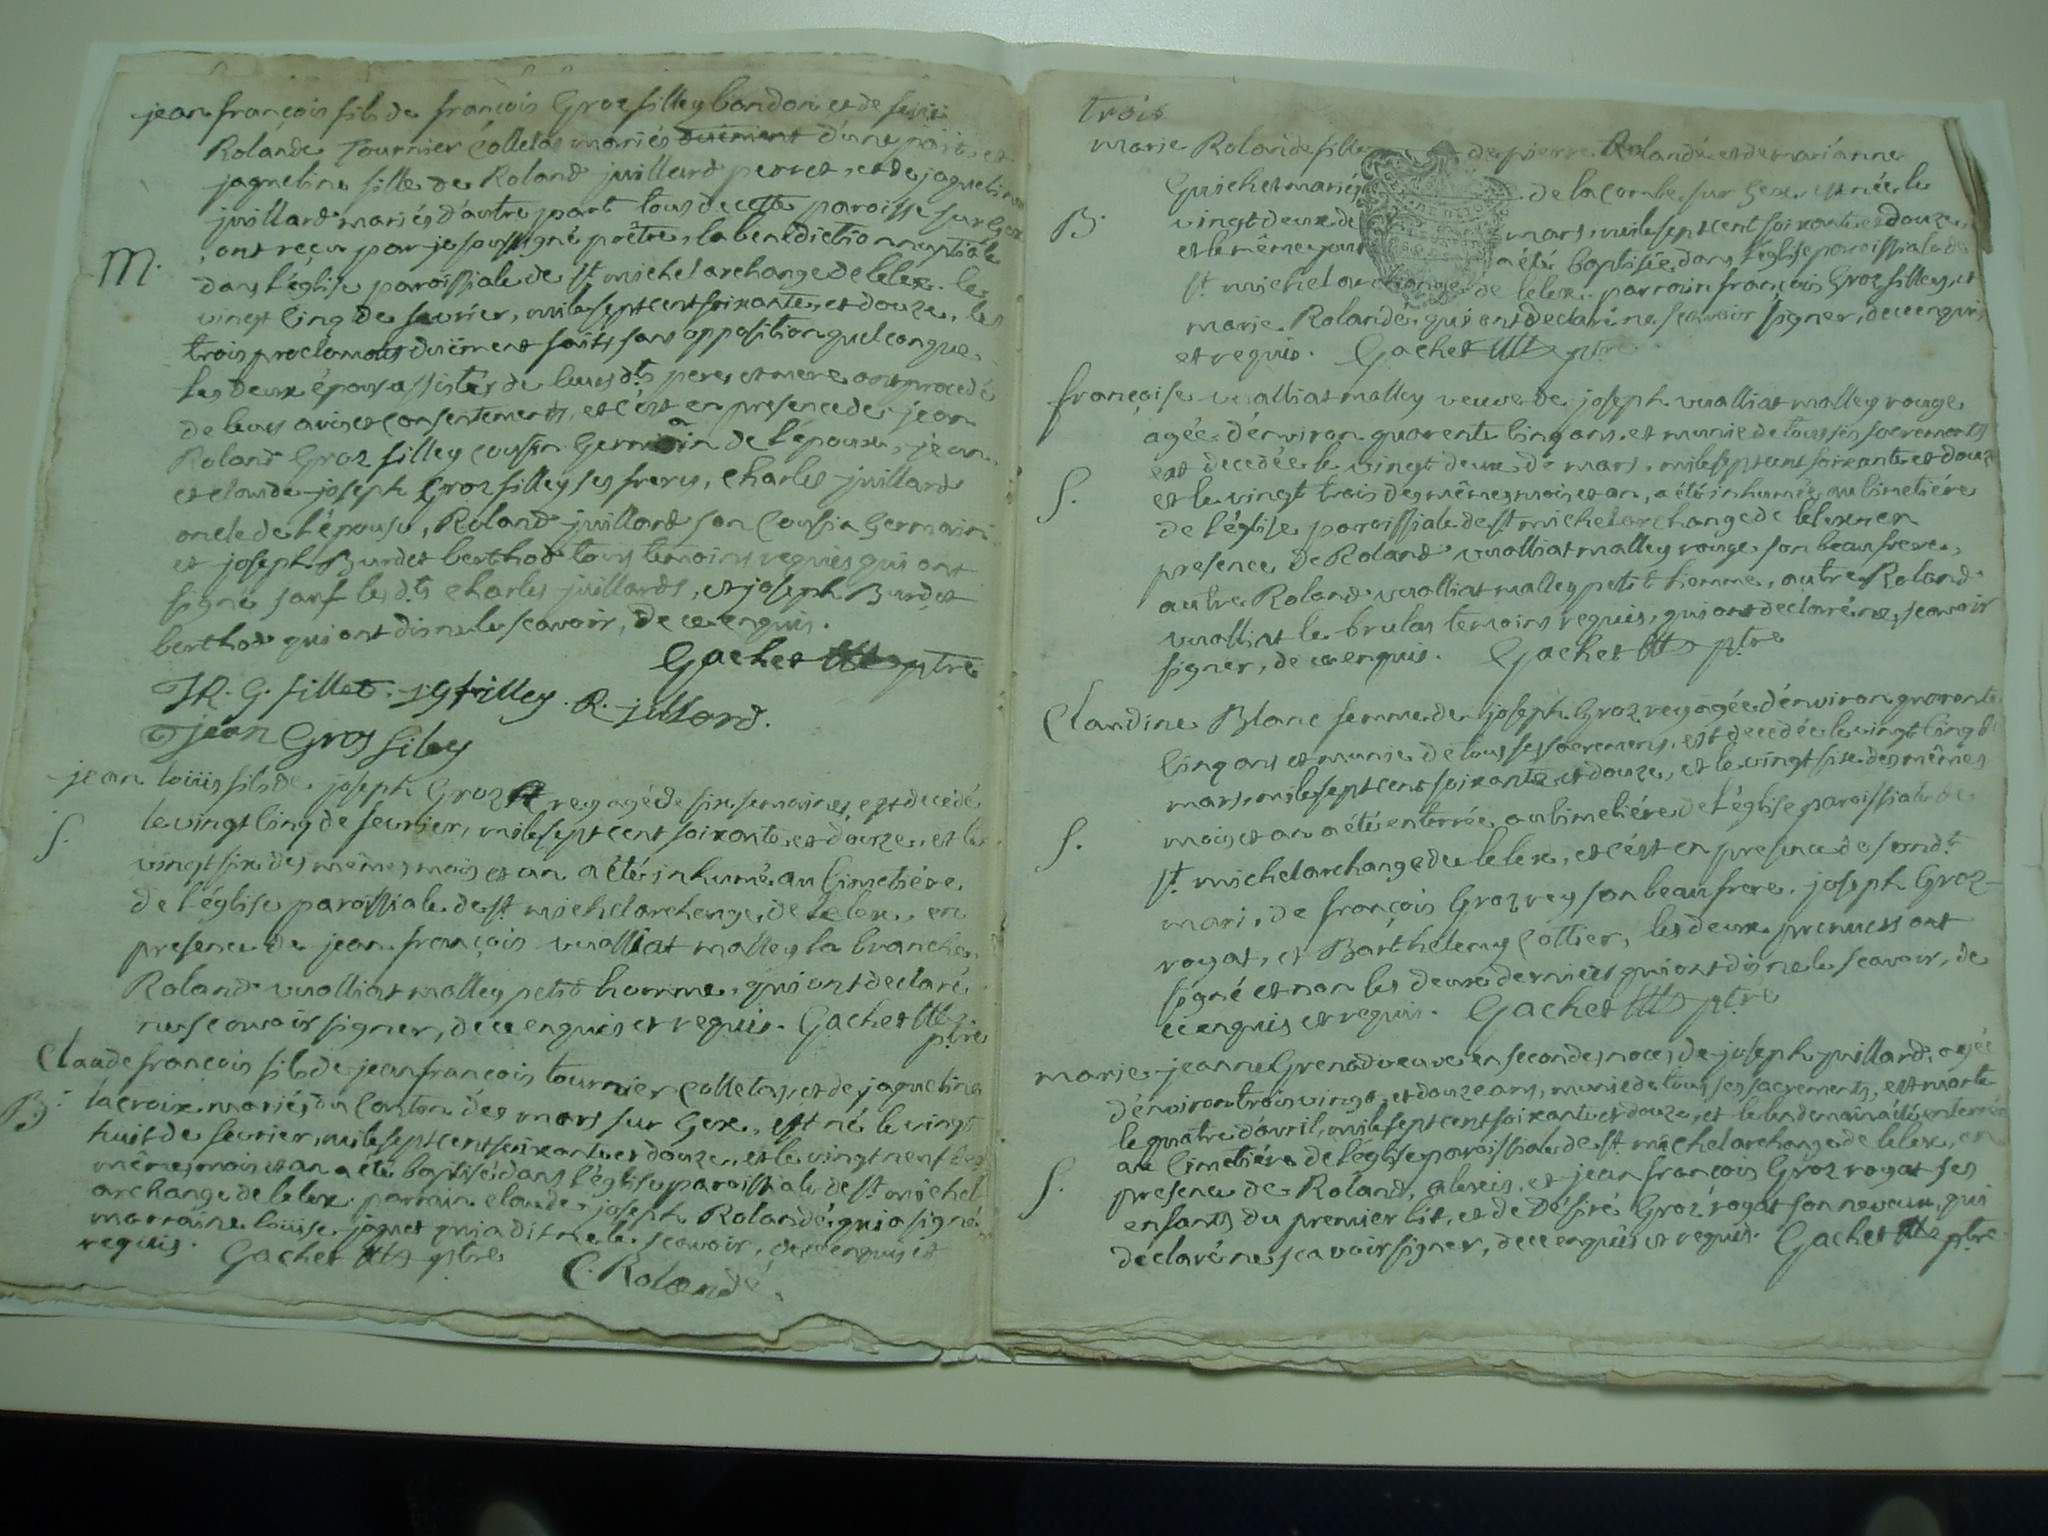 jean françois fils de françois Groz filley bandon et de
Rolande Tournier Colletas mariés duëment d'une part, et
jaqueline fille de Roland juillard perret, et de jaqueline
juillard mariés d'autre part tous de cette paroisse sur Gex
M. ont reçu par je soussigné prêtre, la benediction nuptiale
dans l'église paroissiale de st. michel archange de lelex. le
vingt cinq de fevrier, mile sept cent soixante, et douze, les
trois proclamats duëment faits sans opposition quelconque.
les deux époux assistés de leurs dts peres et mere ont procedé
de leurs avis et consentements, et c'est en presence de jean
Roland Groz filley cousin Germain de l'époux, jean
et claude joseph Groz filley ses freres, charles juillard
oncle de l'épouse, Roland juillard son Cousin Germain
et joseph Burdet berthod tous temoins requis qui ont
signé sauf les dts charles juillard, et joseph Burdet
berthod qui ont dis ne le scavoir, de ce enquis.
Gachet ptre
JR. G. fillet. jgfilley. R. juillard.
jean Gros filey
jean loüis fils de joseph Groz rey agé de six semaines, est decédé
S. le vingt cinq de fevrier, mile sept cent soixante et douze, et le
vingt six des mêmes mois et an a été inhumé au Cimetiére
de l'église paroissiale de st. michel archange de lelex, en
presence de jean françois vualliat malley la branche,
Roland vualliat malley petit homme, qui ont declaré
ne scavoir signer, de ce enquis et requis. Gachet
ptre
Claude françois fils de jean françois tournier Colletas, et de jaqueline
B. lacroix mariés du Canton des mars sur Gex, est né le vingt
huit de fevrier, mile sept cent soixante et douze, et le vingt neuf des
mêmes mois et an a été baptisé dans l'église paroissiale de st. michel
archange de lelex. parrain claude joseph Rolandé qui a signé,
marraine loüise jaquet qui a dit ne le scavoir, de ce enquis et
requis. Gachet ptre
C. Rolandé.
trois
marie Rolandé fille de pierre Rolandé et de marianne
Guichet mariés de la Combe sur Gex est née le
B. vingt deux de mars, mile sept cent soixante et douze,
et le même jour a été baptisée dans l'église paroissiale de
st. michel archange de lelex. parrain françois Groz filley, et
marie Rolande, qui ont declaré ne scavoir signer, de ce enquis
et requis. Gachet ptre
françoise vualliat malley veuve de joseph vualliat malley rouge
agée d'environ quarente cinq ans, et munie de tous ses sacrements
est decedée le vingt deux de mars, mile sept cent soixante et douze
S. et le vingt trois des mêmes mois et an, a été inhumée au Cimetiére
de l'église paroissiale de st. michel archange de lelex en
presence de Roland vualliat malley rouge son beau frere,
autre Roland vualliat malley petit homme, autre Roland
vualliat le brulas temoins requis, qui ont declaré ne scavoir
signer, de ce enquis. Gachet ptre
Claudine Blanc femme de joseph Groz rey agée d'environ quarente
cinq ans et munie de tous ses sacremens, est decedée le vingt cinq de
mars, mile sept cent soixante et douze, et le vingt six des mêmes
S. mois et an a été enterrée au Cimetiére de l'église paroissiale de
st. michel archange de lelex, et c'est en presence de son dt
mari, de françois Groz rey son beau frere. joseph Groz
royat, et Barthelemy Cottier, les deux premiers ont
signé et non les deux derniers qui ont dis ne le scavoir, de
ce enquis et requis. Gachet ptre
marie jeanne Grenad veuve en secondes noces de joseph juillard, agée
d'environ trois vingt, et douze ans, munie de tous ses sacrements, est morte
le quatre d'avril, mile sept cent soixante et douze, et le lendemain a été enterrée
au Cimetiére de l'église paroissiale de st. michel archange de lelex, en
S. presence de Roland, alexis, et jean françois Groz royat ses
enfants du premier lit, et de Désiré Groz royat son neveux, qui
declaré ne scavoir signer, de ce enquis et requis. Gachet ptre